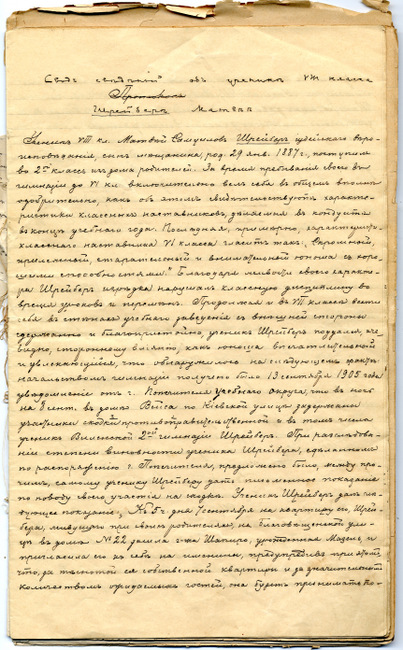 Сводъ свѣдѣній объ ученикѣ VIII класса
Шрейберъ Матвѣѣ
Ученикъ VIII кл. Матвѣй Самуиловъ Шрейберъ іудейскаго вѣро-
исповѣданія, сынъ мѣщанина, род. 29 янв. 1887 г., поступилъ
во 2й классъ изъ дома родителей. За время пребыванія своего въ
гимназіи до VI кл. включительно велъ себя въ общемъ вполнѣ
одобрительно, какъ объ этомъ свидѣтельствуютъ характе-
ристики классныхъ наставниковъ, дѣлаемыя въ кондуитѣ
въ концѣ учебнаго года. Послѣдняя, примѣрно, характеристика
класснаго наставника VI класса гласитъ такъ: „Скромный,
прилежный, старательный и внимательный юноша съ хоро-
шими способностями". Благодаря живости своего характе-
ра Шрейберъ изрѣдка нарушалъ классную дисциплину во
время уроковъ и перемѣнъ. Продолжая и въ VII классѣ вести
себя въ стѣнахъ учебнаго заведенія съ внѣшней стороны
сдержанно и благопристойно, ученикъ Шрейберъ поддался, оче-
видно, стороннему вліянію, какъ юноша впечатлительный
и увлекающійся, что обнаружилось на слѣдующемъ фактѣ:
начальствомъ гимназіи получено было 13 сентября 1905 года
увѣдомленіе отъ г. Попечителя учебнаго округа, что въ ночь
на 8 сент. въ домѣ Вейса по Кіевской улицѣ задержаны
участники сходки противоправительственной и въ томъ числѣ
ученикъ Виленской 2ой гимназіи Шрейберъ. При разслѣдова-
ніи степени виновности ученика Шрейбера, сдѣланномъ
по распоряженію г. Попечителя, предложено было, между про-
чимъ, самому ученику Шрейберу дать письменное показаніе
по поводу своего участія на сходкѣ. Ученикъ Шрейберъ далъ слѣ-
дующее показаніе: „Въ 5 ч. дня 7 сентября на квартиру его, Шрей-
бера, живущаго при своихъ родителяхъ, на Благовѣщенской ули-
цѣ въ домѣ № 22 зашла г-жа Шапиро, урожденная Мазель, и
пригласила его къ себѣ на именины, предупредивъ при этомъ,
что, за тѣснотой ея собственной квартиры и за значительнымъ
количествомъ ожидаемыхъ гостей, она будетъ принимать ко-